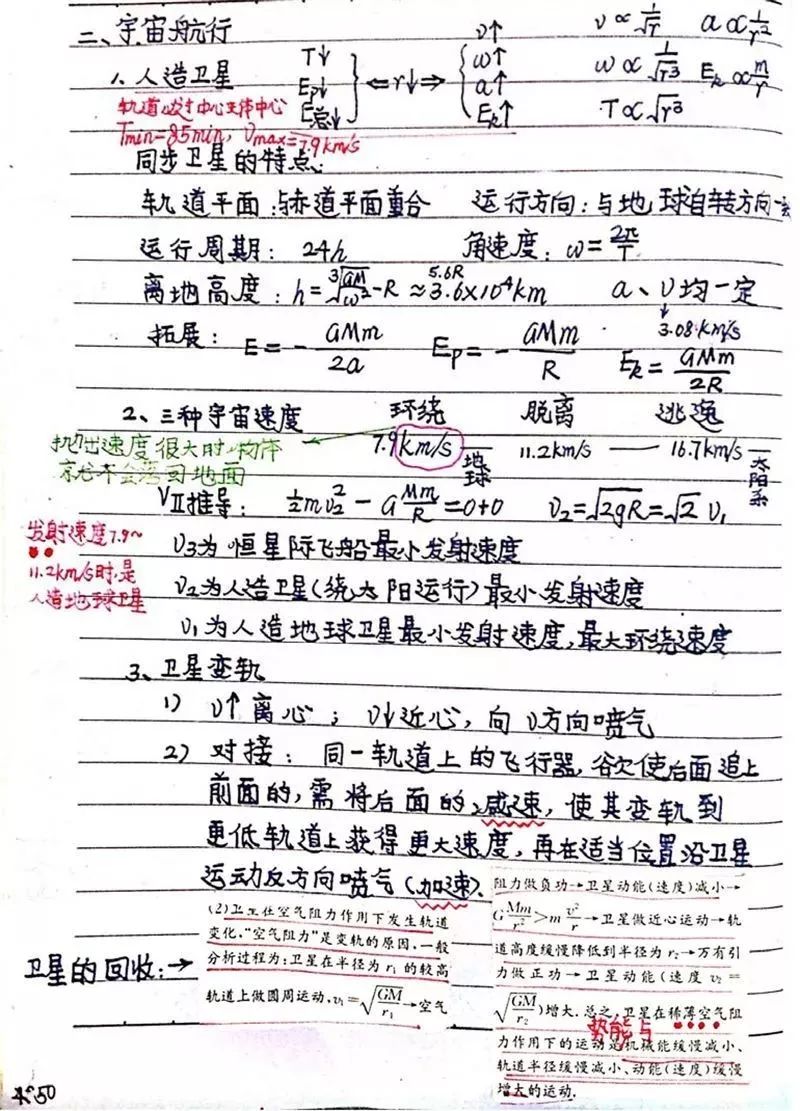 二、宇宙航行
1. 人造卫星
T↓ Ep↓ E总↓ } ⇐r↓⇒ { v↑ ω↑ a↑ Ek↑
v∝1/√r a∝1/r²
ω∝1/√r³ Ek∝m/r
T∝√r³
轨道必过中心天体中心
Tmin=85min, vmax=7.9km/s
同步卫星的特点:
轨道平面:与赤道平面重合 运行方向:与地球自转方向一致
运行周期: 24h 角速度: ω=2π/T
离地高度: h=∛(GM/ω²)-R≈3.6×10⁴km a、v均一定
5.6R
↓
3.08km/s
拓展: E=-GMm/2a Ep=-GMm/R Ek=GMm/2R
2、三种宇宙速度 环绕 脱离 逃逸
7.9km/s 地球 11.2km/s — 16.7km/s 太阳系
抛出速度很大时,物体
就不会落回地面
VⅡ推导: ½mv₂²-GMm/R=0+0 v₂=√2gR=√2 v₁
发射速度7.9~
11.2km/s时,是
人造地球卫星
v₃为恒星际飞船最小发射速度
v₂为人造卫星(绕太阳运行)最小发射速度
v₁为人造地球卫星最小发射速度,最大环绕速度
3、卫星变轨
1) v↑离心; v↓近心,向v方向喷气
2) 对接: 同一轨道上的飞行器,欲使后面追上
前面的,需将后面的减速,使其变轨到
更低轨道上获得更大速度,再在适当位置沿卫星
运动反方向喷气(加速).
卫星的回收:→
(2)卫星在空气阻力作用下发生轨道
变化,“空气阻力”是变轨的原因,一般
分析过程为:卫星在半径为 r₁ 的较高
轨道上做圆周运动,v₁=√(GM/r₁)→空气
阻力做负功→卫星动能(速度)减小→
G Mm/r²>m v²/r→卫星做近心运动→轨
道高度缓慢降低到半径为 r₂→万有引
力做正功→卫星动能(速度 v₂=
√(GM/r₂))增大.总之,卫星在稀薄空气阻
热能与
力作用下的运动是机械能缓慢减小、
轨道半径缓慢减小、动能(速度)缓慢
增大的运动.